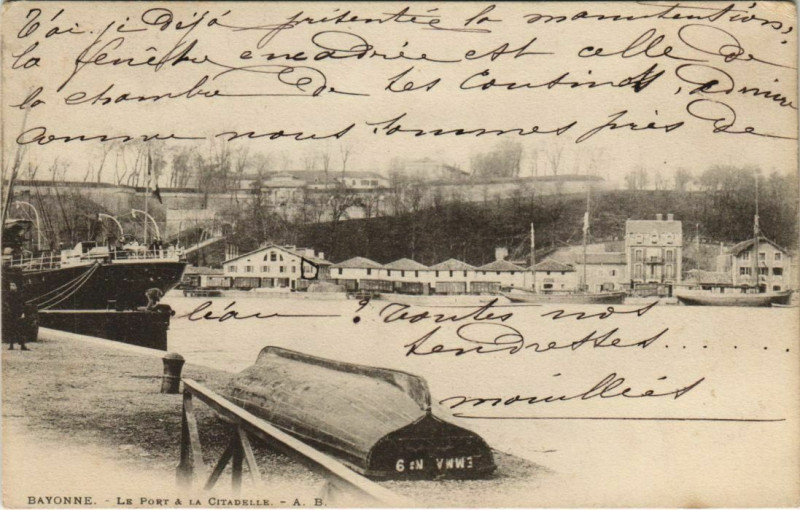 T'ai-je déjà présentée la manutention,
la fenêtre encadrée est celle de
la chambre de tes cousines, admire
comme nous sommes près de
l'eau ? Toutes nos
tendresses......
mouillées
EMMA Nº 9
BAYONNE. - LE PORT & LA CITADELLE. - A. B.